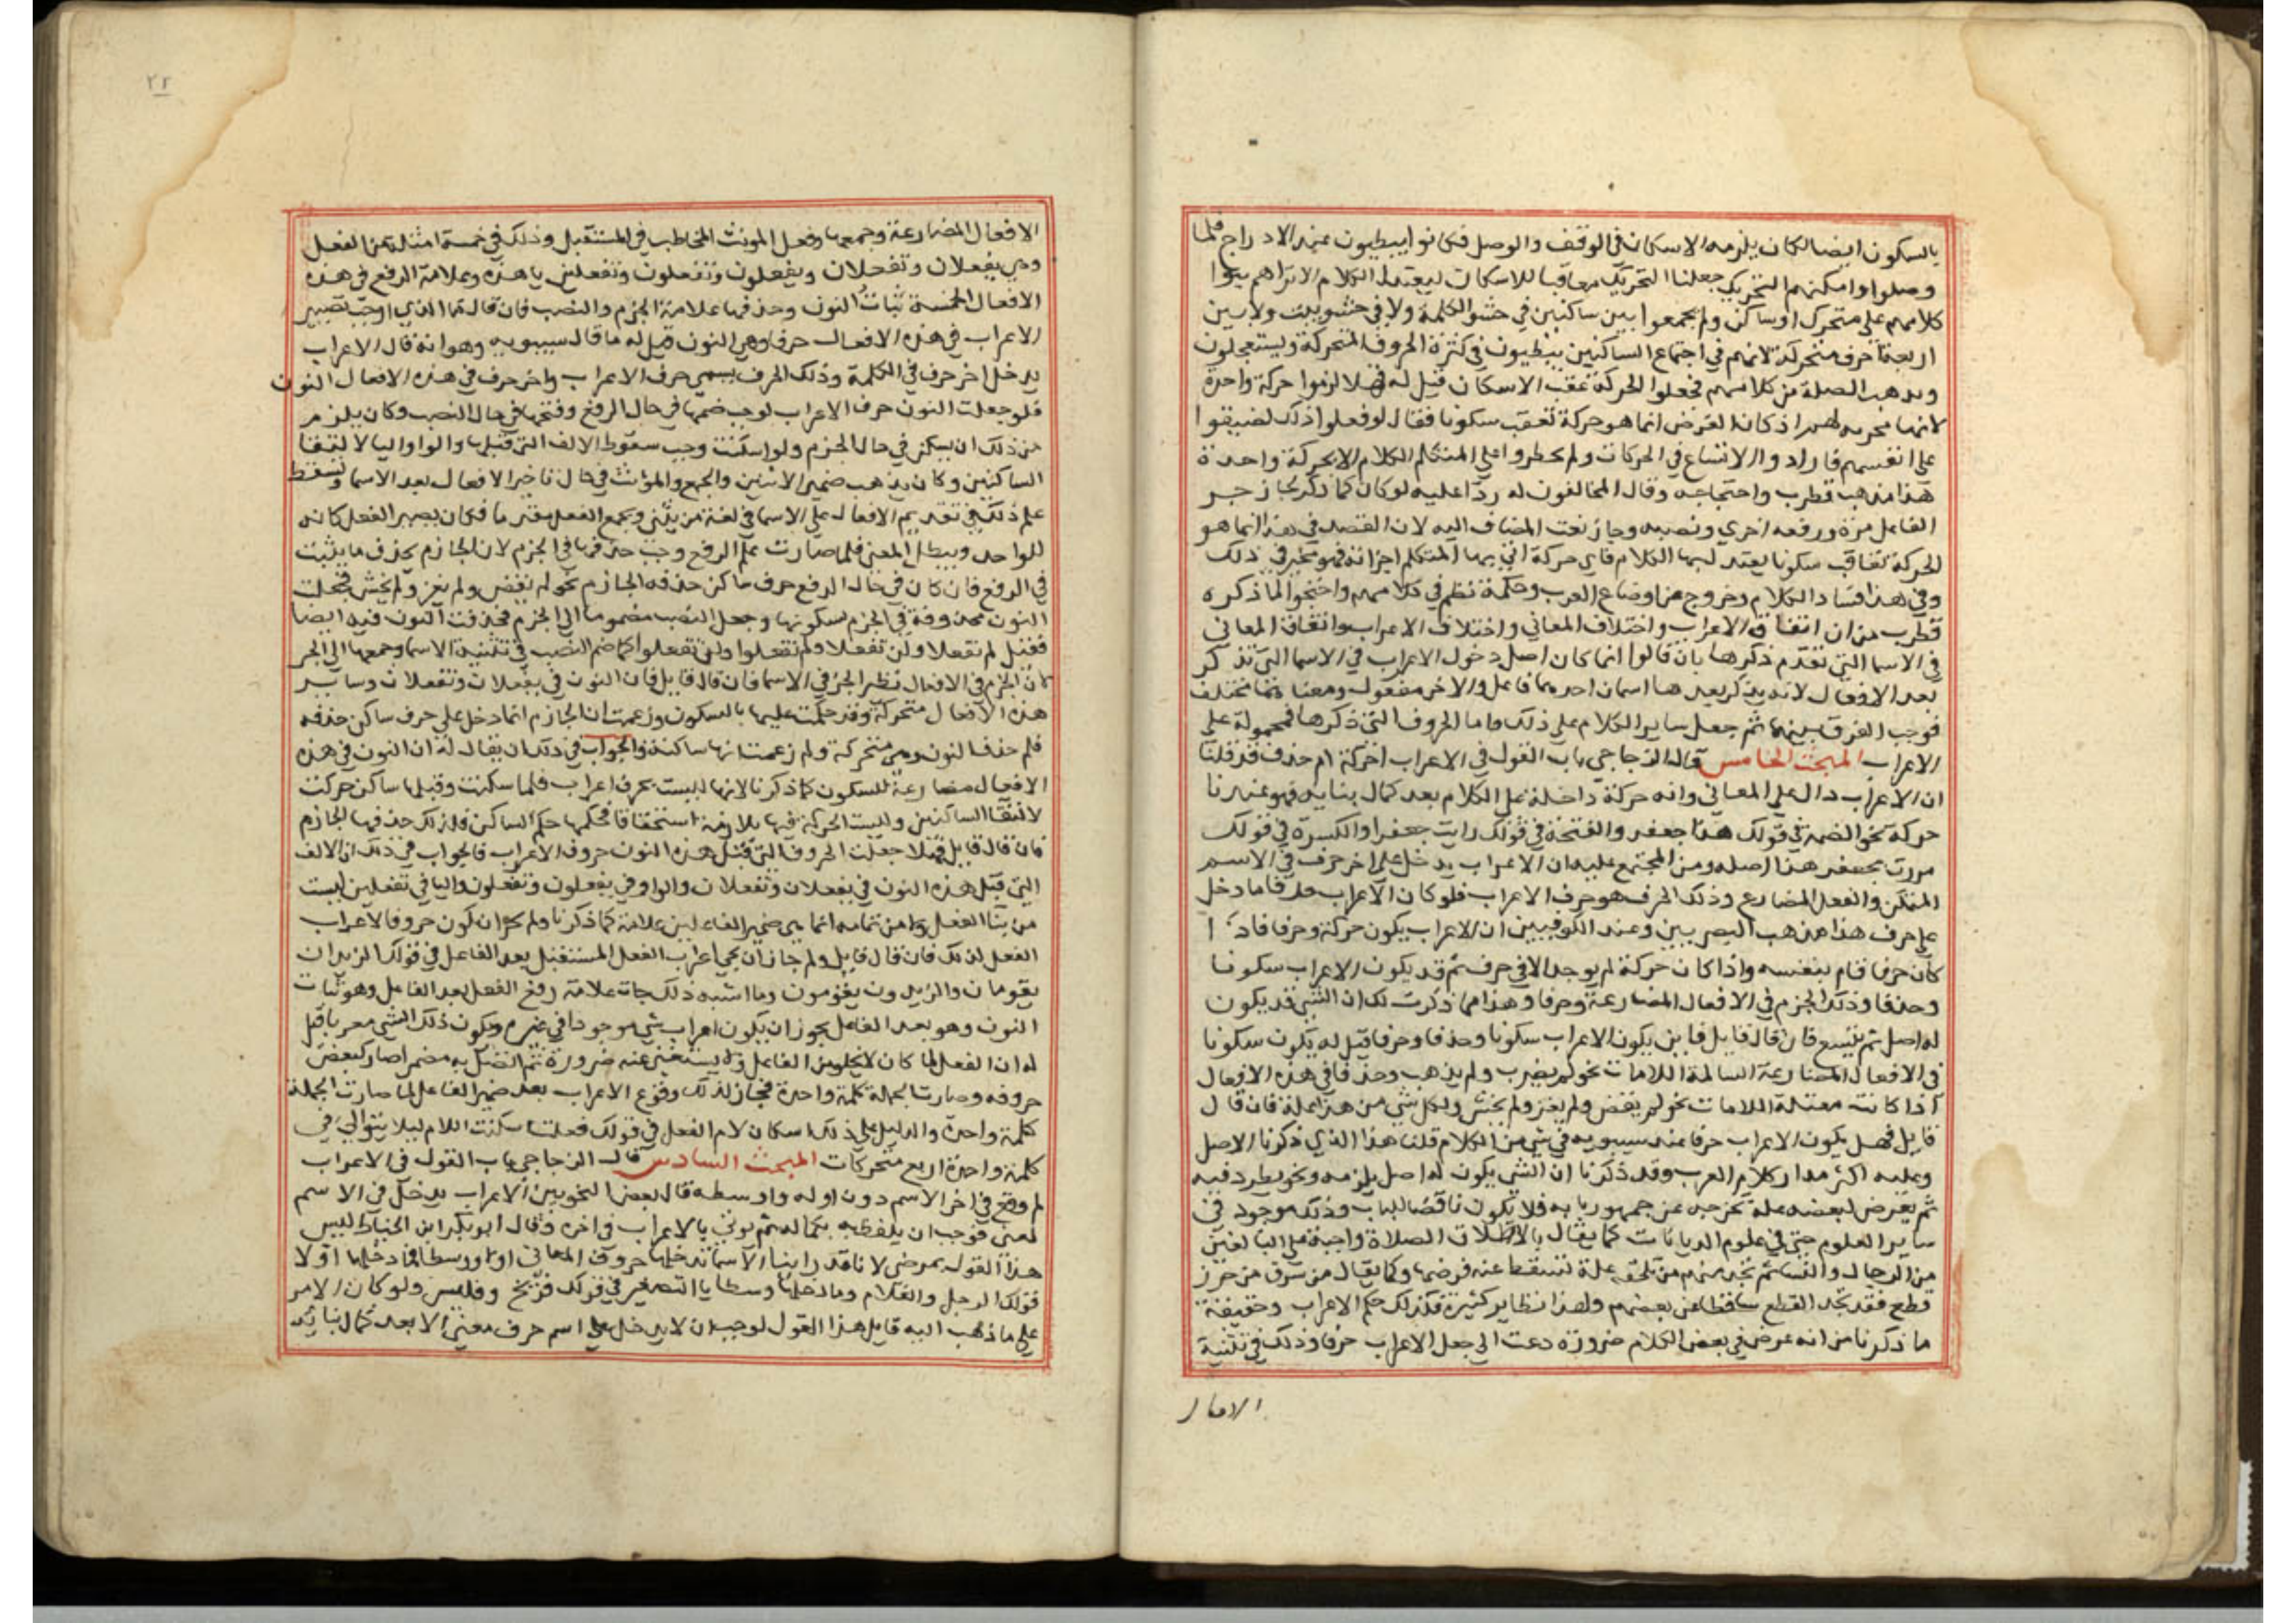 بالسكون ايضا لكان يلزمه الاسكان في الوقف والوصل فكانوا يبطيون عند الادراج فلما
وصلوا وامكنهم التحريك جعلنا التحريك معاقبا للاسكان ليعتدل الكلام الا تراهم بنوا
كلامهم على متحرك او ساكن ولم يجمعوا بين ساكنين في حشو الكلمة ولا في حشو بيت ولا بين
اربعة احرف متحركة لانهم في اجتماع الساكنين يبطيون وفي كثرة الحروف المتحركة ويستعجلون
ويذهب الصلة من كلامهم فجعلوا الحركة عقب الاسكان قيل له فهلا لزموا حركة واحدة
لانها مجريه لهم اذ كان الغرض انما هو حركة تعقب سكونا فقال لو فعلوا ذلك لضيقوا
على انفسهم فارادوا الاتساع في الحركات ولم يحظروا على المتكلم الكلام الا بحركة واحدة
هذا مذهب قطرب واحتجاجه وقال المخالفون له ردا عليه لو كان كما ذكر لجاز جر
الفاعل مرة ورفعه اخري ونصبه وجاز نصب المضاف اليه لان القصد في هذا انما هو
الحركة تعاقب سكونا يعتدل بها الكلام فاي حركة اتي بها المتكلم اجزاته فهو مخير في ذلك
وفي هذا فساد الكلام وخروج عن اوضاع العرب وحكمة نظم في كلامهم واحتجوا لما ذكره
قطرب من ان اتفاق الاعراب واختلاف المعاني واختلاف الاعراب واتفاق المعاني
في الاسما التي تقدم ذكرها بان قالوا انما كان اصل دخول الاعراب في الاسما التي تذكر
بعد الافعال لانه يذكر بعدها اسمان احدهما فاعل والاخر مفعول ومعناهما مختلف
فوجب الفرق بينهما ثم جعل ساير الكلام على ذلك واما الحروف التي ذكرها فمحمولة على
الاعراب المبحث الخامس قال الزجاجي باب القول في الاعراب احركة ام حذف قد قلنا
ان الاعراب دال على المعاني وانه حركة داخلة على الكلام بعد كمال بنايه فهو عندنا
حركة نحو الضمة في قولك هذا جعفر والفتحة في قولك رايت جعفرا والكسرة في قولك
مررت بجعفر هذا اصله ومن المجتمع عليه ان الاعراب يدخل على اخر حرف في الاسم
المتمكن والفعل المضارع وذلك الحرف هو حرف الاعراب فلو كان الاعراب حرفا ما دخل
على حرف هذا مذهب البصريين وعند الكوفيين ان الاعراب يكون حركة وحرفا فاذا
كان حرفا قام بنفسه واذا كان حركة لم يوجد الا في حرف ثم قد يكون الاعراب سكونا
وحذفا وذلك الجزم في الافعال المضارعة وحرفا وهذا مما ذكرت لك ان الشي قد يكون
له اصل ثم يتسع فان قال قايل فاين يكون الاعراب سكونا وحذفا وحرفا قيل له يكون سكونا
في الافعال المضارعة السالمة اللامات نحو لم يضرب ولم يذهب وحذفا في هذه الافعال
اذا كانت معتلة اللامات نحو لم يقض ولم يغز ولم يخش ولكل شي من هذا علة فان قال
قايل فهل يكون الاعراب حرفا عند سيبويه في شي من الكلام قلنا هذا الذي ذكرنا الاصل
وعليه اكثر مدار كلام العرب وقد ذكرنا ان الشي يكون له اصل يلزمه ونحو يطرد فيه
ثم يعرض لبعضه علة تخرجه عن جمهور بابه فلا يكون ناقضا للباب وذلك موجود في
ساير العلوم حتى في علوم الديانات كما يقال بالاطلاق الصلاة واجبة على البالغين
من الرجال والنسا ثم تجد منهم من تلحقه علة تسقط عنه فرضها وكما يقال من سرق من حرز
قطع فقد تجد القطع ساقطا عن بعضهم ولهذا نظاير كثيرة فكذلك حكم الاعراب وحقيقة
ما ذكرنا من انه عرض في بعض الكلام ضرورة دعت الى جعل الاعراب حرفا وذلك في تثنية
الافعال
٢٢
الافعال المضارعة وجمعها وفعل المونث المخاطب في المستقبل وذلك في خمسة امثلة من الفعل
وهي يفعلان وتفعلان ويفعلون وتفعلون وتفعلين يا هذه وعلامة الرفع في هذه
الافعال الخمسة ثبات النون وحذفها علامة الجزم والنصب فان قال فما الذي اوجب تصيير
الاعراب في هذه الافعال حرفا وهي النون قيل له ما قال سيبويه وهو انه قال الاعراب
يدخل اخر حرف في الكلمة وذلك الحرف يسمى حرف الاعراب واخر حرف في هذه الافعال النون
فلو جعلت النون حرف الاعراب لوجب ضمها في حال الرفع وفتحها في حال النصب وكان يلزم
من ذلك ان يسكن في حال الجزم ولو اسكنت وجب سقوط الالف التي قبلها والواو واليا لالتقا
الساكنين وكان يذهب ضمير الاثنين والجمع والمؤنث في حال تاخير الافعال بعد الاسما وتسقط
علم ذلك في تقديم الافعال على الاسما في لغة من يثني ويجمع الفعل مقدما فكان يصير الفعل كانه
للواحد ويبطل المعنى فلما صارت علم الرفع وجب حذفها في الجزم لان الجازم يحذف ما يثبت
في الرفع فان كان في حال الرفع حرف ساكن حذفه الجازم نحو لم يقض ولم يغز ولم يخش فجعلت
النون محذوفة في الجزم لسكونها وجعل النصب مضموما الى الجزم فحذفت النون فيه ايضا
فقيل لم تفعلا ولن تفعلا ولم تفعلوا ولن تفعلوا كما ضم النصب في تثنية الاسما وجمعها الى الجر
لان الجزم في الافعال نظير الجر في الاسما فان قال قايل فان النون في يفعلان وتفعلان وساير
هذه الافعال متحركة وقد حكمت عليها بالسكون وزعمت ان الجازم انما دخل على حرف ساكن حذفه
فلم حذف النون وهي متحركة ولم زعمت انها ساكنة والجواب في ذلك ان يقال له ان النون في هذه
الافعال مضارعة للسكون كما ذكرنا لانها ليست بحرف اعراب فلما سكنت وقبلها ساكن حركت
لالتقا الساكنين وليست الحركة فيها بلازمة استحقاقا فحكمها حكم الساكن فلذلك حذفها الجازم
فان قال قايل فهلا جعلت الحروف التي قبل هذه النون حروف الاعراب فالجواب في ذلك ان الالف
التي قبل هذه النون في يفعلان وتفعلان والواو في يفعلون وتفعلون واليا في تفعلين ليست
من بنا الفعل ولا من تمامه انما هي ضمير الفاعلين علامة كما ذكرنا ولم يجز ان تكون حروف الاعراب
الفعل لذلك فان قال قايل ولم جاز ان يجي اعراب الفعل المستقبل بعد الفاعل في قولك الزيدان
يقومان والزيدون يقومون وما اشبه ذلك جات علامة رفع الفعل بعد الفاعل وهو ثبات
النون وهو بعد الفاعل يجوز ان يكون اعراب شي موجودا في غيره ويكون ذلك الشي معربا قيل
له ان الفعل لما كان لا يخلو من الفاعل ولا يستغني عنه ضرورة ثم اتصل به مضمرا صار كبعض
حروفه وصارت الجملة كلمة واحدة فجاز لذلك وقوع الاعراب بعد ضمير الفاعل لما صارت الجملة
كلمة واحدة والدليل على ذلك اسكان لام الفعل في قولك فعلت اسكنت اللام ليلا يتوالى في
كلمة واحدة اربع متحركات المبحث السادس قال الزجاجي باب القول في الاعراب
لم وقع في اخر الاسم دون اوله واوسطه قال بعض النحويين الاعراب يدخل في الاسم
لمعنى فوجب ان يلفظ به بكماله ثم يوتى بالاعراب في اخره وقال ابو بكر ابن الخياط ليس
هذا القول بمرضي لانا قد راينا الاسما تدخلها حروف المعاني اولا ووسطا فما دخلها اولا
قولك الرجل والغلام وما دخلها وسطا يا التصغير في قولك فريخ وفليس ولو كان الامر
على ما ذهب اليه قايل هذا القول لوجب ان لا يدخل على اسم حرف معنى الا بعد كمال بنائه